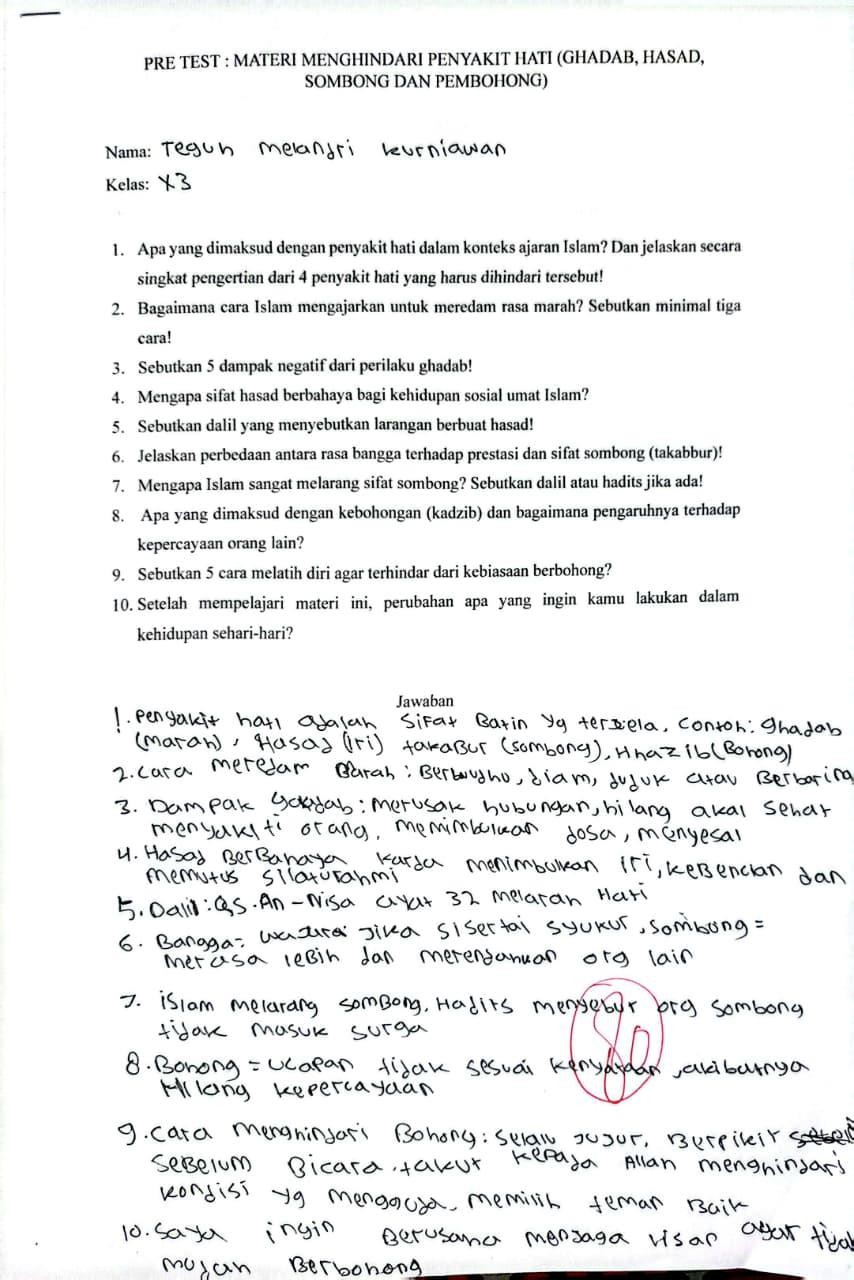 PRE TEST : MATERI MENGHINDARI PENYAKIT HATI (GHADAB, HASAD,
SOMBONG DAN PEMBOHONG)
Nama: Teguh Melandri kurniawan
Kelas: X3
1. Apa yang dimaksud dengan penyakit hati dalam konteks ajaran Islam? Dan jelaskan secara
singkat pengertian dari 4 penyakit hati yang harus dihindari tersebut!
2. Bagaimana cara Islam mengajarkan untuk meredam rasa marah? Sebutkan minimal tiga
cara!
3. Sebutkan 5 dampak negatif dari perilaku ghadab!
4. Mengapa sifat hasad berbahaya bagi kehidupan sosial umat Islam?
5. Sebutkan dalil yang menyebutkan larangan berbuat hasad!
6. Jelaskan perbedaan antara rasa bangga terhadap prestasi dan sifat sombong (takabbur)!
7. Mengapa Islam sangat melarang sifat sombong? Sebutkan dalil atau hadits jika ada!
8. Apa yang dimaksud dengan kebohongan (kadzib) dan bagaimana pengaruhnya terhadap
kepercayaan orang lain?
9. Sebutkan 5 cara melatih diri agar terhindar dari kebiasaan berbohong?
10. Setelah mempelajari materi ini, perubahan apa yang ingin kamu lakukan dalam
kehidupan sehari-hari?
Jawaban
1. Penyakit hati adalah sifat Batin yg tercela, contoh: ghadab
(marah), Hasad (Iri) takaBur (sombong), Khazib (Bohong)
2. cara meredam Marah : Berwudhu, diam, duduk atau Berbaring
3. Dampak : merusak hubungan, hilang akal sehat
menyakiti orang, menimbulkan dosa, menyesal
4. Hasad BerBahaya karda menimbulkan iri, keBencian dan
memutus silaturahmi
5. Dalil : QS. An-Nisa ayat 32 melarah Hati
6. Bangga = jika sisertai syukur, sombong =
merasa leBih dan merendahkan org lain
7. islam melarang somBong, Hadits menyebut org sombong
tidak masuk surga
80
8. Bohong = ucapan tidak sesuai kenyataan, akibatnya
Hilang kepercayaan
9. cara menghindari Bohong : selalu jujur, Berpikir
seBelum Bicara, takut kepada Allah menghindari
kondisi yg menggoda, memilih teman Baik
10. saya ingin Berusaha menjaga lisan agar tidak
mudah Berbohong